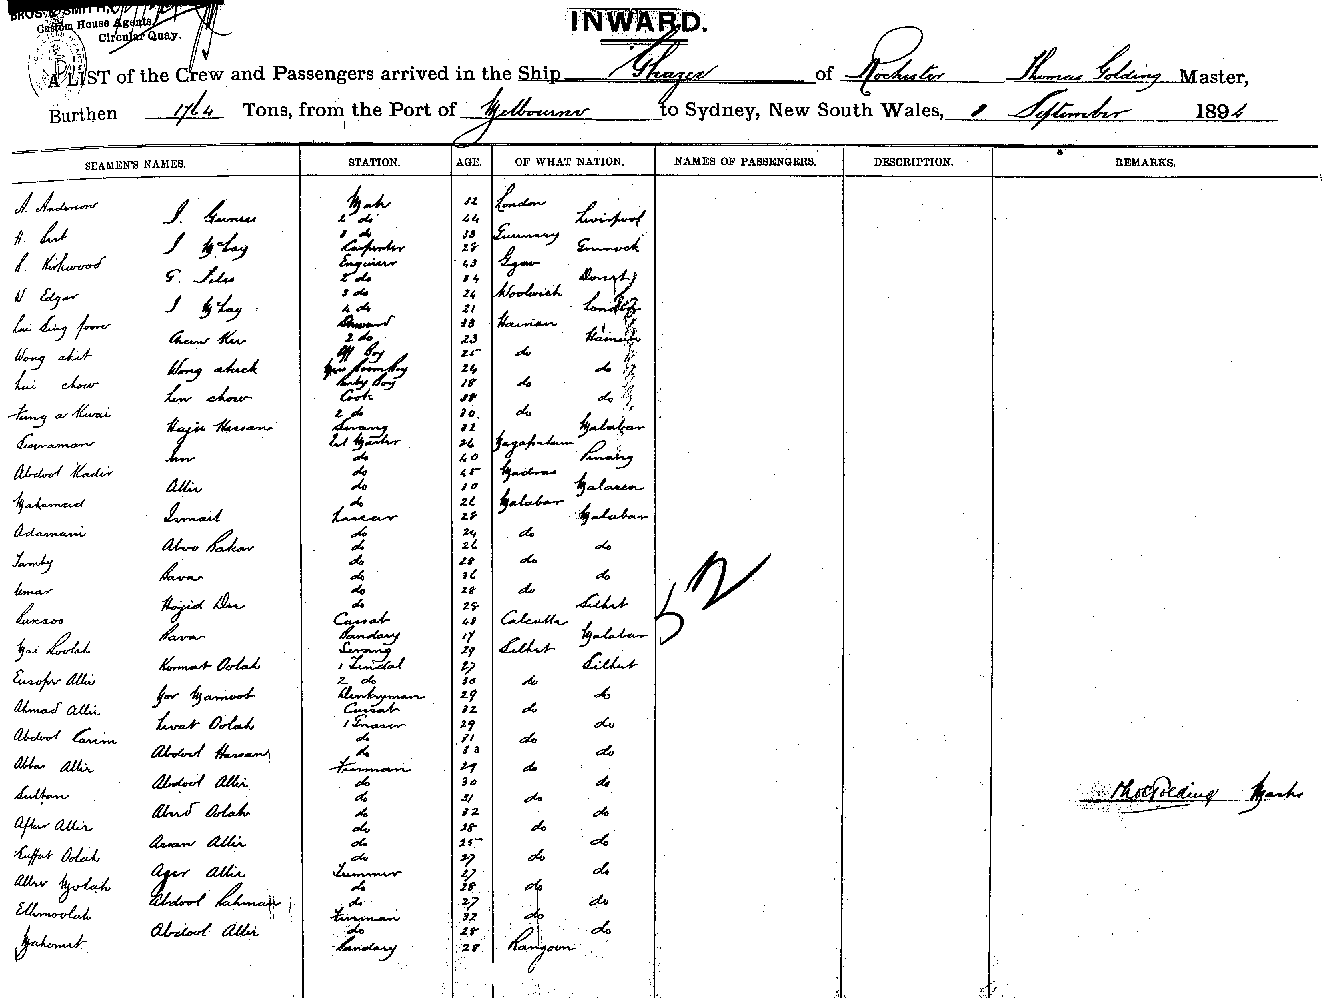 BROS. & SMITH,
Custom House Agents,
Circular Quay.
INWARD.
A LIST of the Crew and Passengers arrived in the Ship Ghazee of Rochester Thomas Golding Master,
Burthen 1764 Tons, from the Port of Melbourne to Sydney, New South Wales, September 1894
SEAMEN'S NAMES. STATION. AGE. OF WHAT NATION. NAMES OF PASSENGERS. DESCRIPTION. REMARKS.
A. Anderson Mate 32 London
2 do 44 Liverpool
3 do 33 Guernsey
J McLay Carpenter 28 Greenock
R. Kirkwood Engineer 43
G. 2 do 34
W Edgar 3 do 24 Woolwich
J McLay 4 do 21 London
Steward 33 Hainan
2 do 23 Hainan
Wong akit Boy 25 do
Wong ahick Boy 24 do
Lui chow Boy 18 do
Len chow Cook 38 do
2 do 30 do
Hajee Hassan Serang 32 Malabar
26
do 40 Penang
Abdool Kadir do 45 Madras
Allie do 30
Mahomed do 26 Malabar
Ismail Lascar 28 Malabar
do 24 do
Aboo Bakar do 26 do
Tamby do 28 do
Bava do 36 do
Umar do 28 do
do 25 Silhet
Cassab 48 Calcutta
Bava Bandary 17 Malabar
Serang 29 Silhet
Komat Oolah 1 Tindal 27 Silhet
Eusope Allie 2 do 30 do
Donkeyman 29 do
Ahmad Allie Cassab 32 do
Levat Oolah 1 Greaser 29 do
Abdool Carim do 31 do
Abdool Hassan do 33 do
Abba Allie Fireman 29 do
Abdool Allie do 30 do
Sultan do 31 do
Abed Oolah do 32 do
After Allie do 28 do
Assan Allie do 25 do
Euffat Oolah do 27 do
Ager Allie Trimmer 27 do
Allee Molah do 28 do
Abdool Rahman do 27 do
Ellimoolah Fireman 32 do
Abdool Allie do 28 do
Mahomet Bandary 28 Rangoon
52
Thos Golding Master